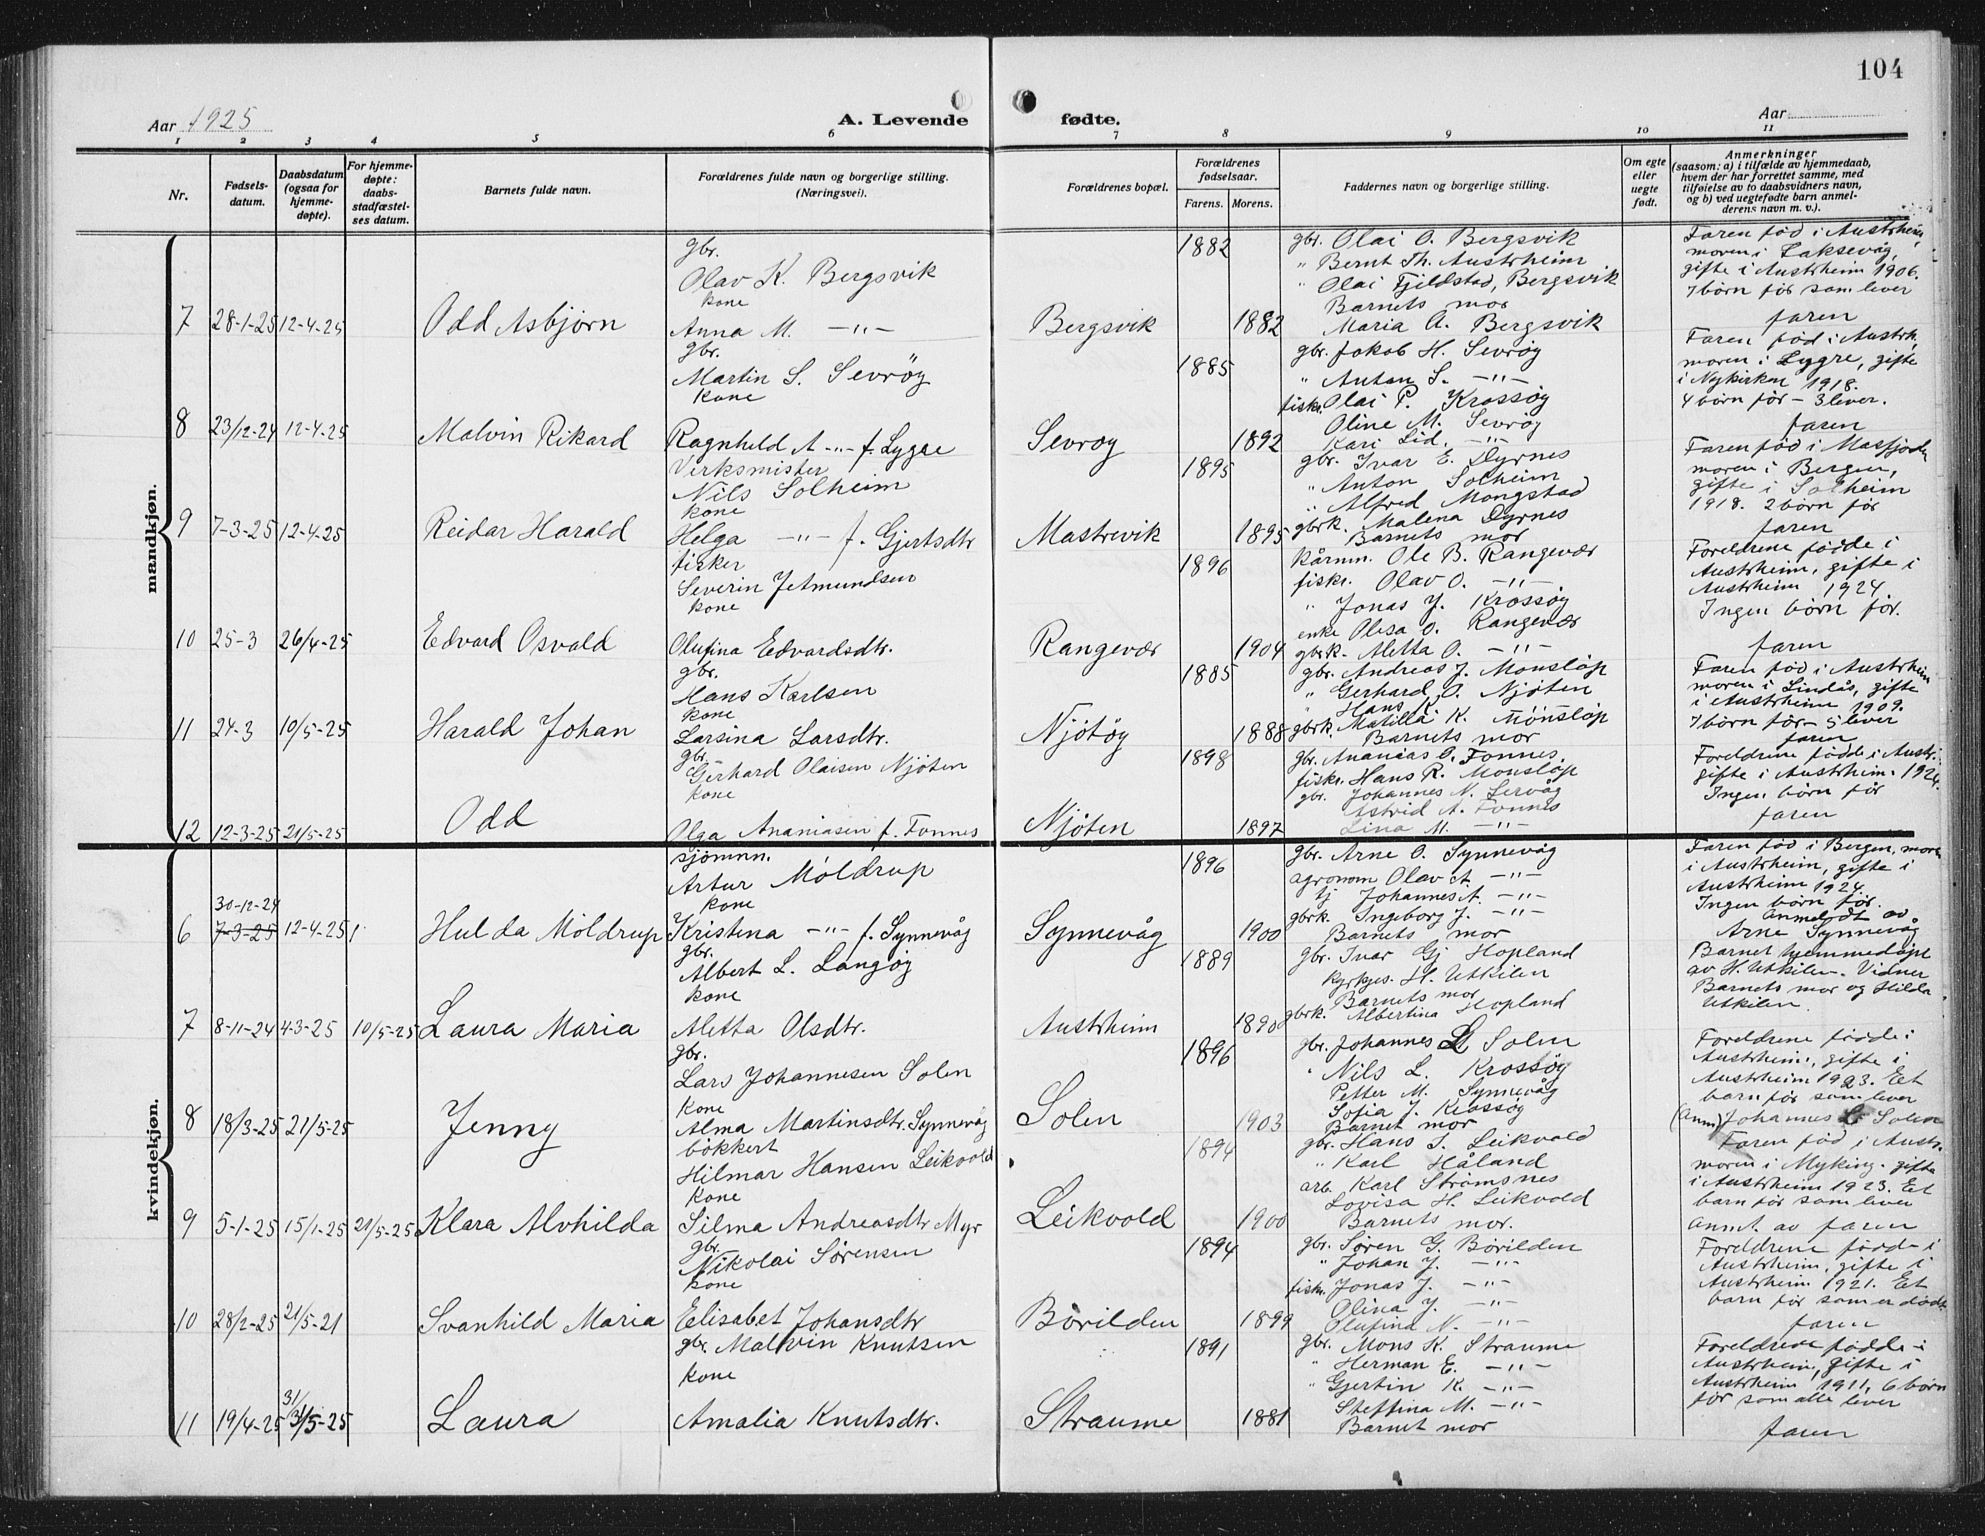 104
Aar 1925
A. Levende
fødte.
Aar
1 2 3 4 5 6 7 8 9 10 11
Nr.
Fødsels-
datum.
Daabsdatum
(ogsaa for
hjemme-
døpte).
For hjemme-
døpte:
daabs-
stadfæstel-
ses datum.
Barnets fulde navn.
Forældrenes fulde navn og borgerlige stilling.
(Næringsvei).
Forældrenes bopæl.
Forældrenes
fødselsaar.
Farens. Morens.
Faddernes navn og borgerlige stilling.
Om egte
eller
uegte
født.
Anmerkninger
(saasom: a) i tilfælde av hjemmedaab,
hvem der har forrettet samme, med
tilføielse av to daabsvidners navn,
og b) ved uegtefødte barn anmel-
derens navn m. v.).
mandkjøn.
7 28-1-25 12-4-25 Odd Asbjørn
gbr.
Olav K. Bergsvik
kone
Anna M. -"-
Bergsvik 1882 1882
gbr. Olai O. Bergsvik
" Bernt Th. Austrheim
" Olai Fjeldstad, Bergsvik
Barnets mor
Maria A. Bergsvik
Faren fød i Austrheim,
moren i Laksevåg,
gifte i Austrheim 1906.
7 børn før som lever
faren
8 23/12-24 12-4-25 Malvin Rikard
gbr.
Martin S. Sevrøy
kone
Ragnhild A -"- f. Lygre
Sevrøy 1885 1892
gbr. Jakob H. Sevrøy
" Anton S. -"-
fisk. Olai P. Krossøy
Oline M. Sevrøy
Kari Lid. -"-
Faren fød i Austrh.
moren i Lygre, gifte
i Nykirken 1918.
4 børn før - 3 lever.
faren
9 7-3-25 12-4-25 Reidar Harald
Verksmister
Nils Solheim
kone
Helga -"- f. Gjertsdtr
Mastrevik 1895 1895
gbr. Ivar E. Dyrnes
" Anton Solheim
" Alfred Mongstad
gbrk. Malena Dyrnes
Barnets mor
Faren fød i Masfjorden
moren i Bergen,
gifte i Solheim
1918. 2 børn før
faren
10 25-3 26/4-25 Edvard Osvald
fisker
Severin Jetmundsen
kone
Olufina Edvardsdtr.
Rangevær 1896 1904
Kårmn. Ole B. Rangevær
fisk. Olav O. -"-
" Jonas J. Krossøy
enke Olesa O. Rangevær
gbrk. Aletta O. -"-
Foreldrene fødde i
Austrheim, gifte i
Austrheim 1924.
Ingen børn før.
faren
11 24-3 10/5-25 Harald Johan
gbr.
Hans Karlsen
kone
Larsina Larsdtr.
Njøtøy 1885 1888
gbr. Andreas J. Mønsløp
" Gerhard O. Njøten
" Hans K.
gbrk. Matilla K. Mønsløp
Barnets mor
Faren fød i Austrheim
moren i Lindås, gifte
i Austrheim 1909.
7 børn før - 5 lever
faren
12 12-3-25 21/5-25 Odd
gbr.
Gerhard Olaisen Njøten
kone
Olga Ananiasen f. Fonnes
Njøten 1898 1897
gbr. Ananias O. Fonnes.
fisk. Hans R. Mønsløp
gbr. Johannes N. Lervåg
Astrid A. Fonnes
Lina M. -"-
Foreldrene fødde i Austr.
gifte i Austrheim. 1924.
Ingen børn før
faren
kvindekjøn.
6 30-12-24
7-3-25 12-4-25 Hulda Möldrup
sjømnn.
Artur Möldrup
kone
Kristina -"- f. Synnevåg
Synnevåg 1896 1900
gbr. Arne O. Synnevåg
agronom Olav A. -"-
tj Johannes A. -"-
gbrk. Ingeborg J. -"-
Barnets mor
Faren fød i Bergen, moren
i Austrheim, gifte i
Austrheim 1924.
Ingen børn før.
Anmeldt av
Arne Synnevåg
7 8-11-24 4-3-25 10/5-25 Laura Maria
gbr.
Albert L. Langøy
kone
Aletta Olsdtr.
Austrheim 1889 1890
gbr. Ivar Gj Hopland
kyrkjes. H. Utkilen
Barnets mor
gbrk. Albertina Hopland
Barnet hjemmedøpt
av H. Utkilen. Vidner
Barnets mor og Hilda
Utkilen
8 18/3-25 21/5-25 Jenny
gbr.
Lars Johannesen Solen
kone
Alma Martinsdtr. Synnevåg
Solen 1896 1903
gbr. Johannes L Solen
" Nils L. Krossøy
Petter M. Synnevåg
Sofia J. Krossøy
Barnet mor
Foreldrene fødde i
Austrheim, gifte i
Austrheim 1923. Et
barn før som lever
(Anm) Johannes L. Solen
9 5-1-25 15/1-25 21/5-25 Klara Alvhilda
bøkkert
Hilmar Hansen Leikvold
kone
Silma Andreasdtr Myr
Leikvold 1894 1900
gbr. Hans J. Leikvold
" Karl Håland
arb. Karl Strømsnes
Lovisa H. Leikvold
Barnets mor.
Faren fød i Austr.
moren i Myking. gifte
i Austrheim 1923. Et
barn før som lever
Anmt. av faren
10 28/2-25 21/5-21 Svanhild Maria
gbr.
Nikolai Sørensen
kone
Elisabet Johansdtr
Børilden 1894 1899
gbr. Søren G. Børilden
" Johan J. -"-
fisk. Jonas J. -"-
Olina J. -"-
Olufina N. -"-
Foreldrene fødde i
Austrheim, gifte i
Austrheim 1921. Et
barn før som er dødt
faren
11 19/4-25 31/
31/5-25 Laura
gbr. Malvin Knutsen
kone
Amalia Knutsdtr.
Straume 1891 1881
gbr. Mons K. Straume
" Herman E. -"-
" Gjertin K. -"-
Steffina M. -"-
Barnet mor
Foreldrene fødde i
Austrheim, gifte i
Austrheim 1911, 6 børn
før som alle lever
faren